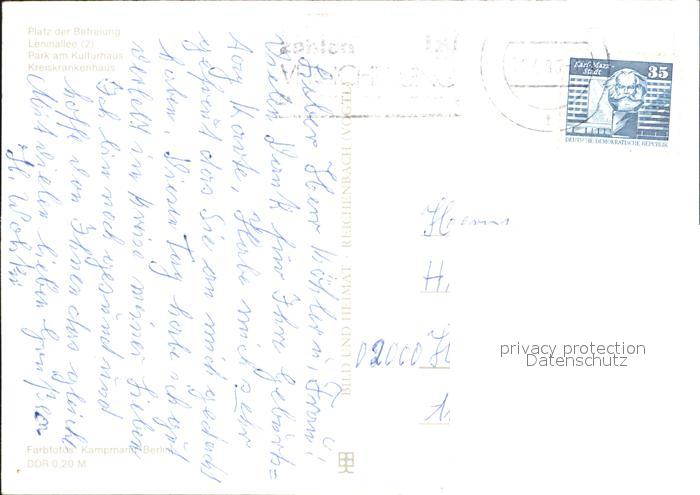 Platz der Befreiung
Leninallee (2)
Park am Kulturhaus
Kreiskrankenhaus
Lieber Herr Köhler u. Frau!
Vielen Dank für Ihre Geburts=
tag Karte, Habe mich sehr
gefreut das Sie an mich gedacht
haben. Diesen Tag habe ich gut
verlebt im Kreise meiner Lieben
Ich bin noch gesund und
hoffe von Ihnen das gleiche
Mit vielen lieben Grüßen
Farbfotos: Kampmann, Berlin
DDR 0,20 M
BILD UND HEIMAT · REICHENBACH
Karl-Marx-
Stadt
35
DEUTSCHE DEMOKRATISCHE REPUBLIK
Herrn
H.
02000 H
privacy protection
Datenschutz